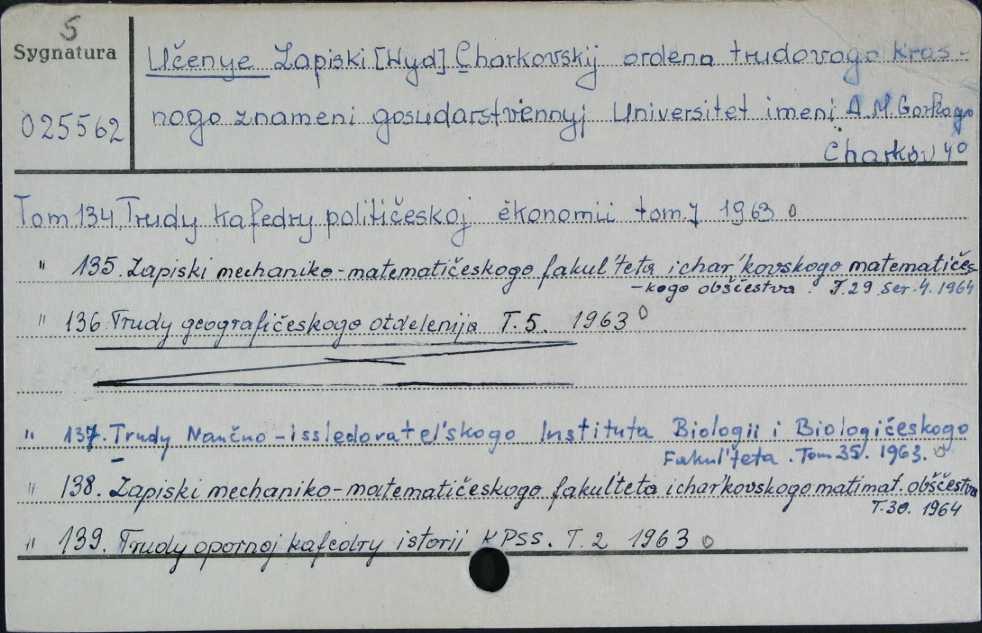 5
Sygnatura
025562
Učenye Zapiski [Wyd] Charkovskij ordena trudovogo kras-
nogo znameni gosudarstviennyj Universitet imeni A.M. Gorkago
Charkov 4°
Tom 134, Trudy kafedry političeskoj ėkonomii tom 7 1963 o
" 135. Zapiski mechaniko-matematičeskogo fakul'teta i char'kovskogo matematičes-
-kogo obščestva T.29 Ser. 4. 1964
" 136 Trudy geografičeskogo otdelenija T. 5 1963 o
" 137. Trudy Naučno-issledovatel'skogo Instituta Biologii i Biologičeskogo
Fakul'teta. Tom 35. 1963. o
" 138. Zapiski mechaniko-matematičeskogo fakul'teta i char'kovskogo matimat. obščestva
T. 30. 1964
" 139. Trudy opornoj kafedry istorii KPSS. T. 2 1963 o